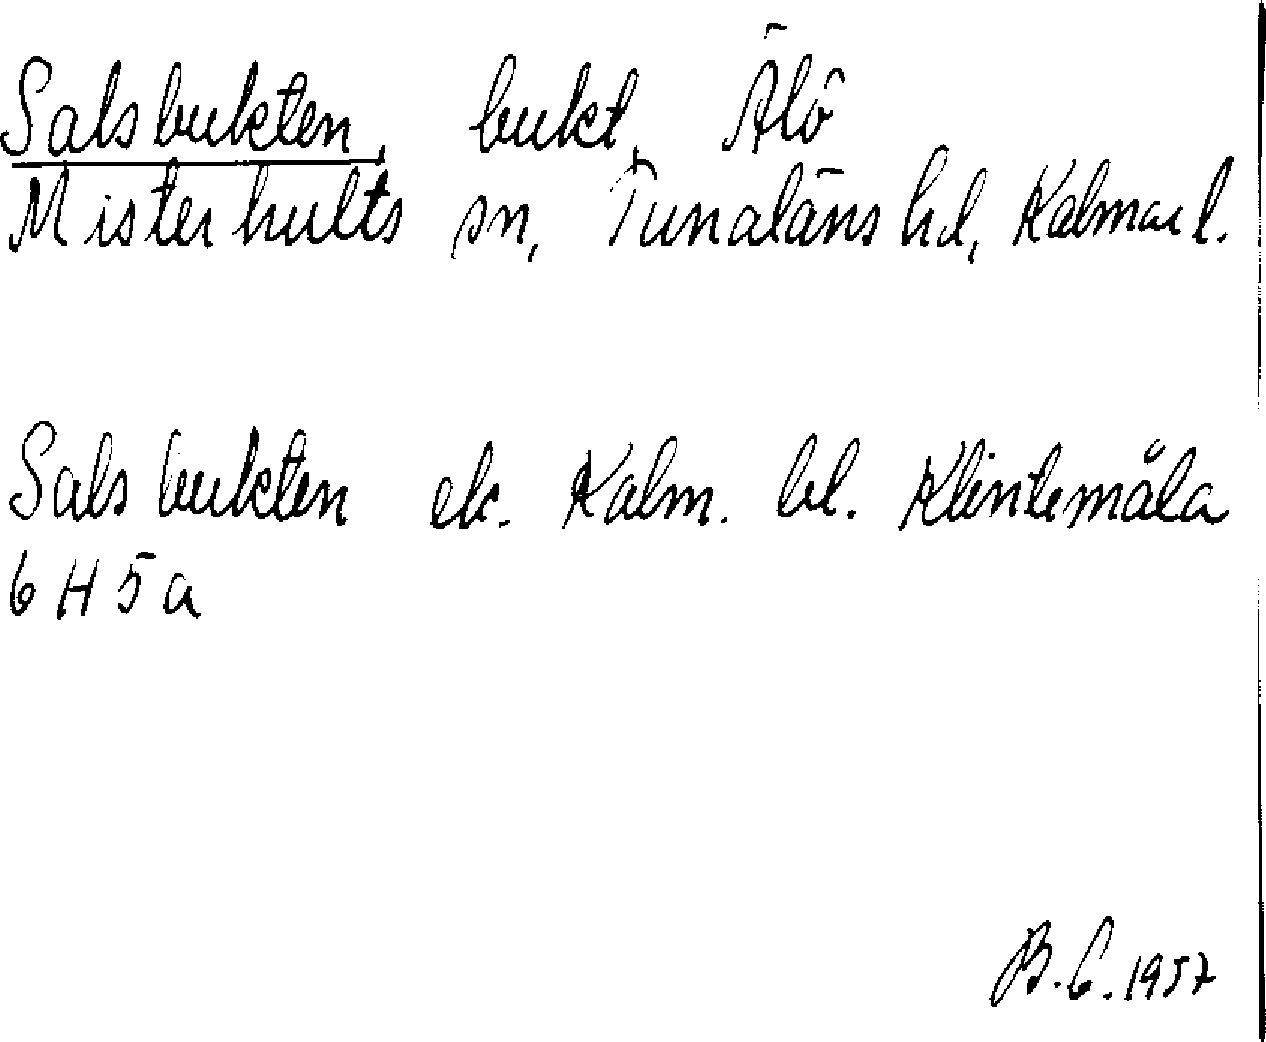 Salsbukten, bukt, Älö
Misterhults sn, Tunaläns hd, Kalmar l.
Salsbukten ek. Kalm. bl. Klintemåla
6 H 5 a
B.C. 1957